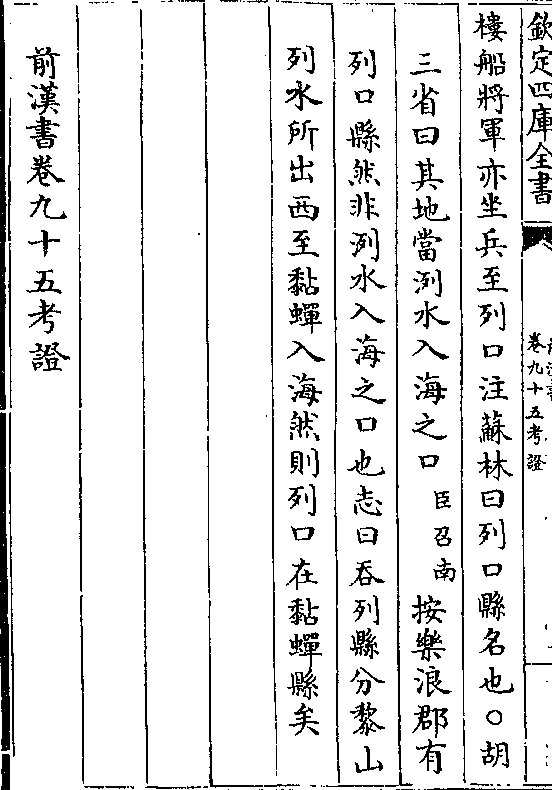 欽定四庫全書
卷九十五考證
樓船將軍亦坐兵至列口注蘇林曰列口縣名也○胡
三省曰其地當洌水入海之口臣召南按樂浪郡有
列口縣然非洌水入海之口也志曰吞列縣分黎山
列水所出西至黏蟬入海然則列口在黏蟬縣矣
前漢書卷九十五考證